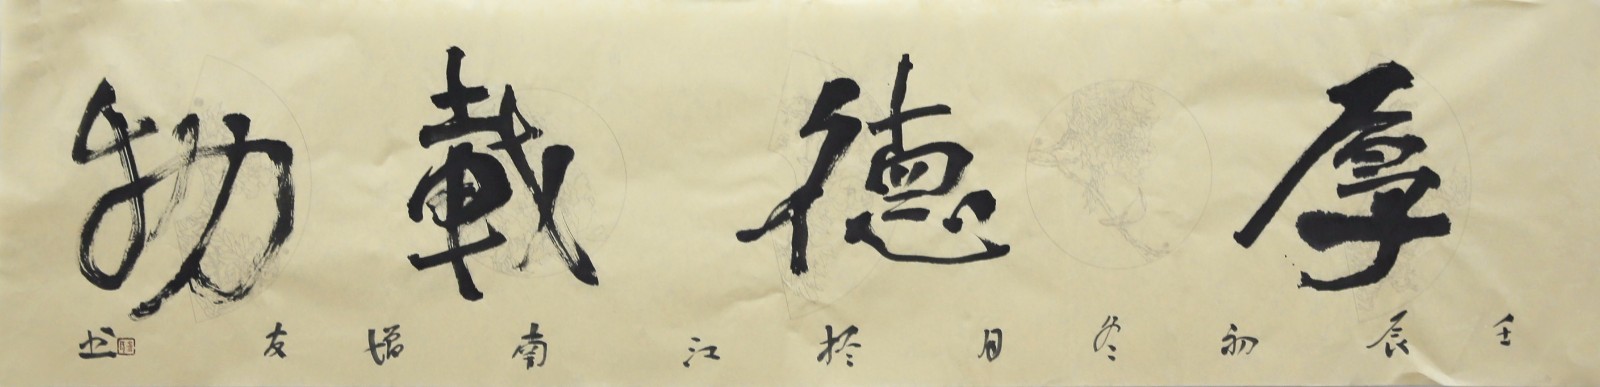 厚德載物
壬辰初冬月於江南增友书